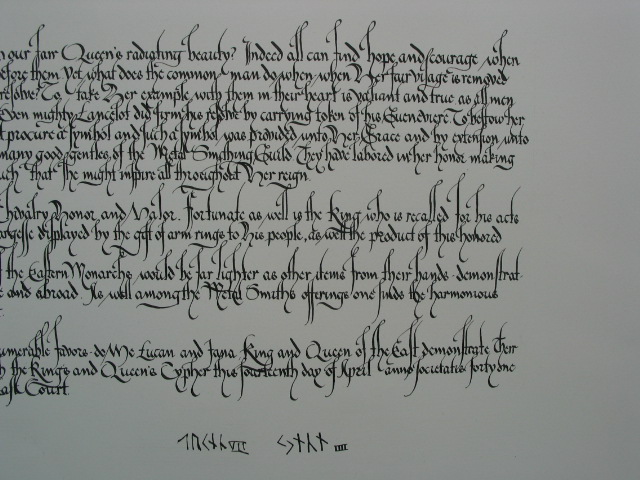 our fair Queen's radiating beauty? Indeed all can find hope, and courage when
before them yet what does the common man do when when Her fair visage is removed
resolve? To take Her example, with them in their heart is valiant and true as all men
Even mighty Lancelot did firm his resolve by carrying token of his Guendviere To bestow her
procure a symbol and such a symbol was provided unto Her Grace and by extension unto
many good gentles of the Metal Smithing Guild They have labored in her honor making
such that She might inspire all throughout Her reign
Chivalry Honor and Valor. Fortunate as well is the King who is recalled for his acts
largesse displayed by the gift of arm rings to His people, as well the product of this honored
the Eastern Monarchs would be far lighter as other items from their hands demonstrat-
and abroad As well among the Metal Smiths offerings one finds the harmonious
favors do We Lucan and Jana King and Queen of the East demonstrate Their
the Kings and Queen's Cypher this fourteenth day of April anno societatis forty one
Court.